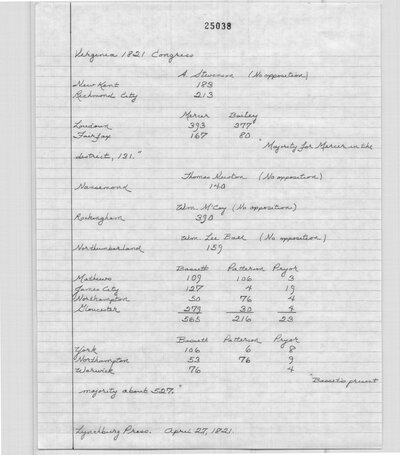 25038
Virginia 1821 Congress
A. Stevenson (No opposition)
New Kent 183
Richmond City 213
Mercer Bailey
Loudoun 393 277
Fairfax 167 80
"Majority for Mercer in the
district, 121."
Thomas Newton (No opposition)
Nansemond 140
Wm. McCoy (No opposition)
Rockingham 390
Wm. Lee Ball (No opposition)
Northumberland 159
Bassett Patterson Pryor
Mathews 109 106 3
James City 127 4 19
Northampton 50 76 4
Gloucester 279 30
565 216 23
Bassett Patterson Pryor
York 106 6 8
Northampton 53 76 9
Warwick 76 4
"Bassett's present
majority about 527."
Lynchburg Press. April 27, 1821.